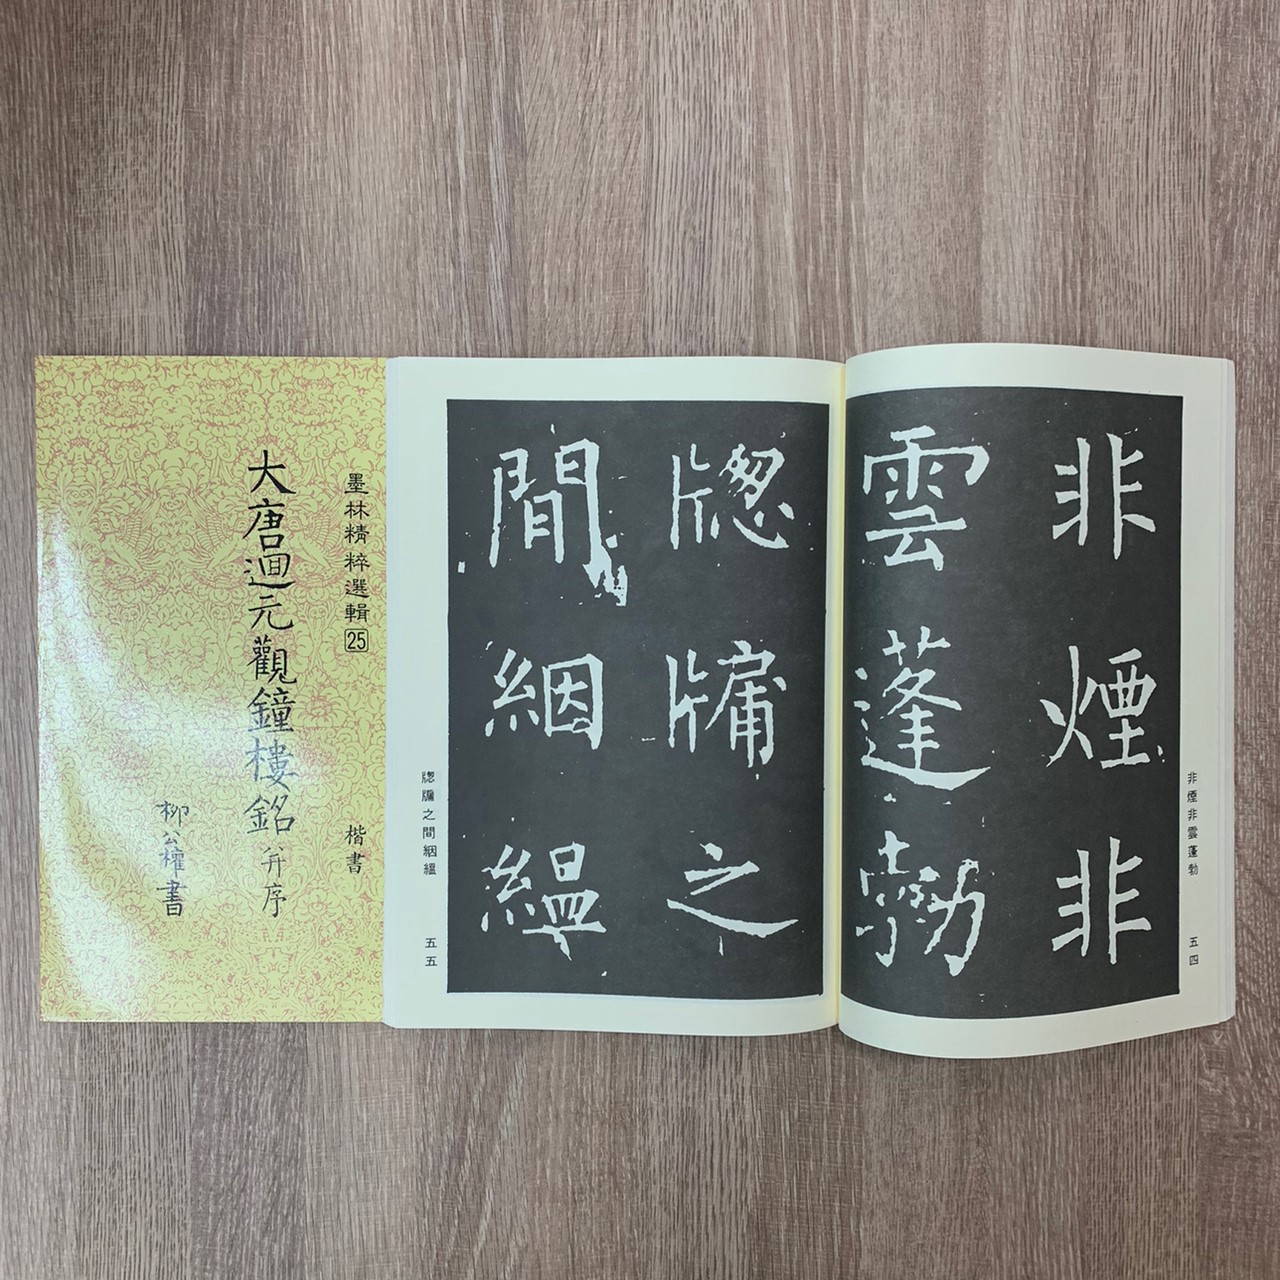 墨林精粹選輯25 楷書
大唐迴元觀鐘樓銘并序
柳公權書
非煙非雲蓬勃 五四
非煙非
雲蓬勃
牎牖之
間絪縕
牎牖之間絪縕 五五